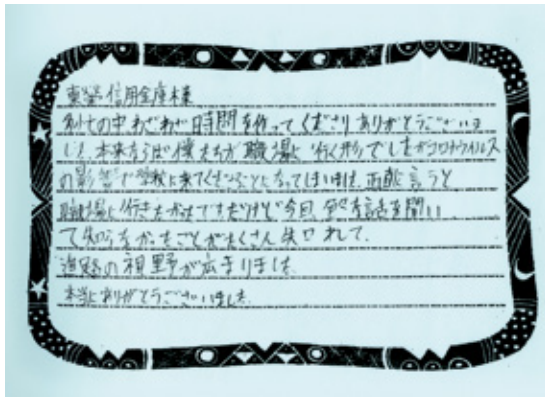 東栄信用金庫様
お忙の中わざわざ時間を作ってくださりありがとうございま
した。本来ならば僕たちが職場に行く形でしたがコロナウイルス
の影響で学校に来てくださることになってしまいました。正直言うと
職場に行きたかったですだけど今回、色々な話を聞い
て知らなかったことがたくさん知れて、
進路の視野が広まりました。
本当にありがとうございました。